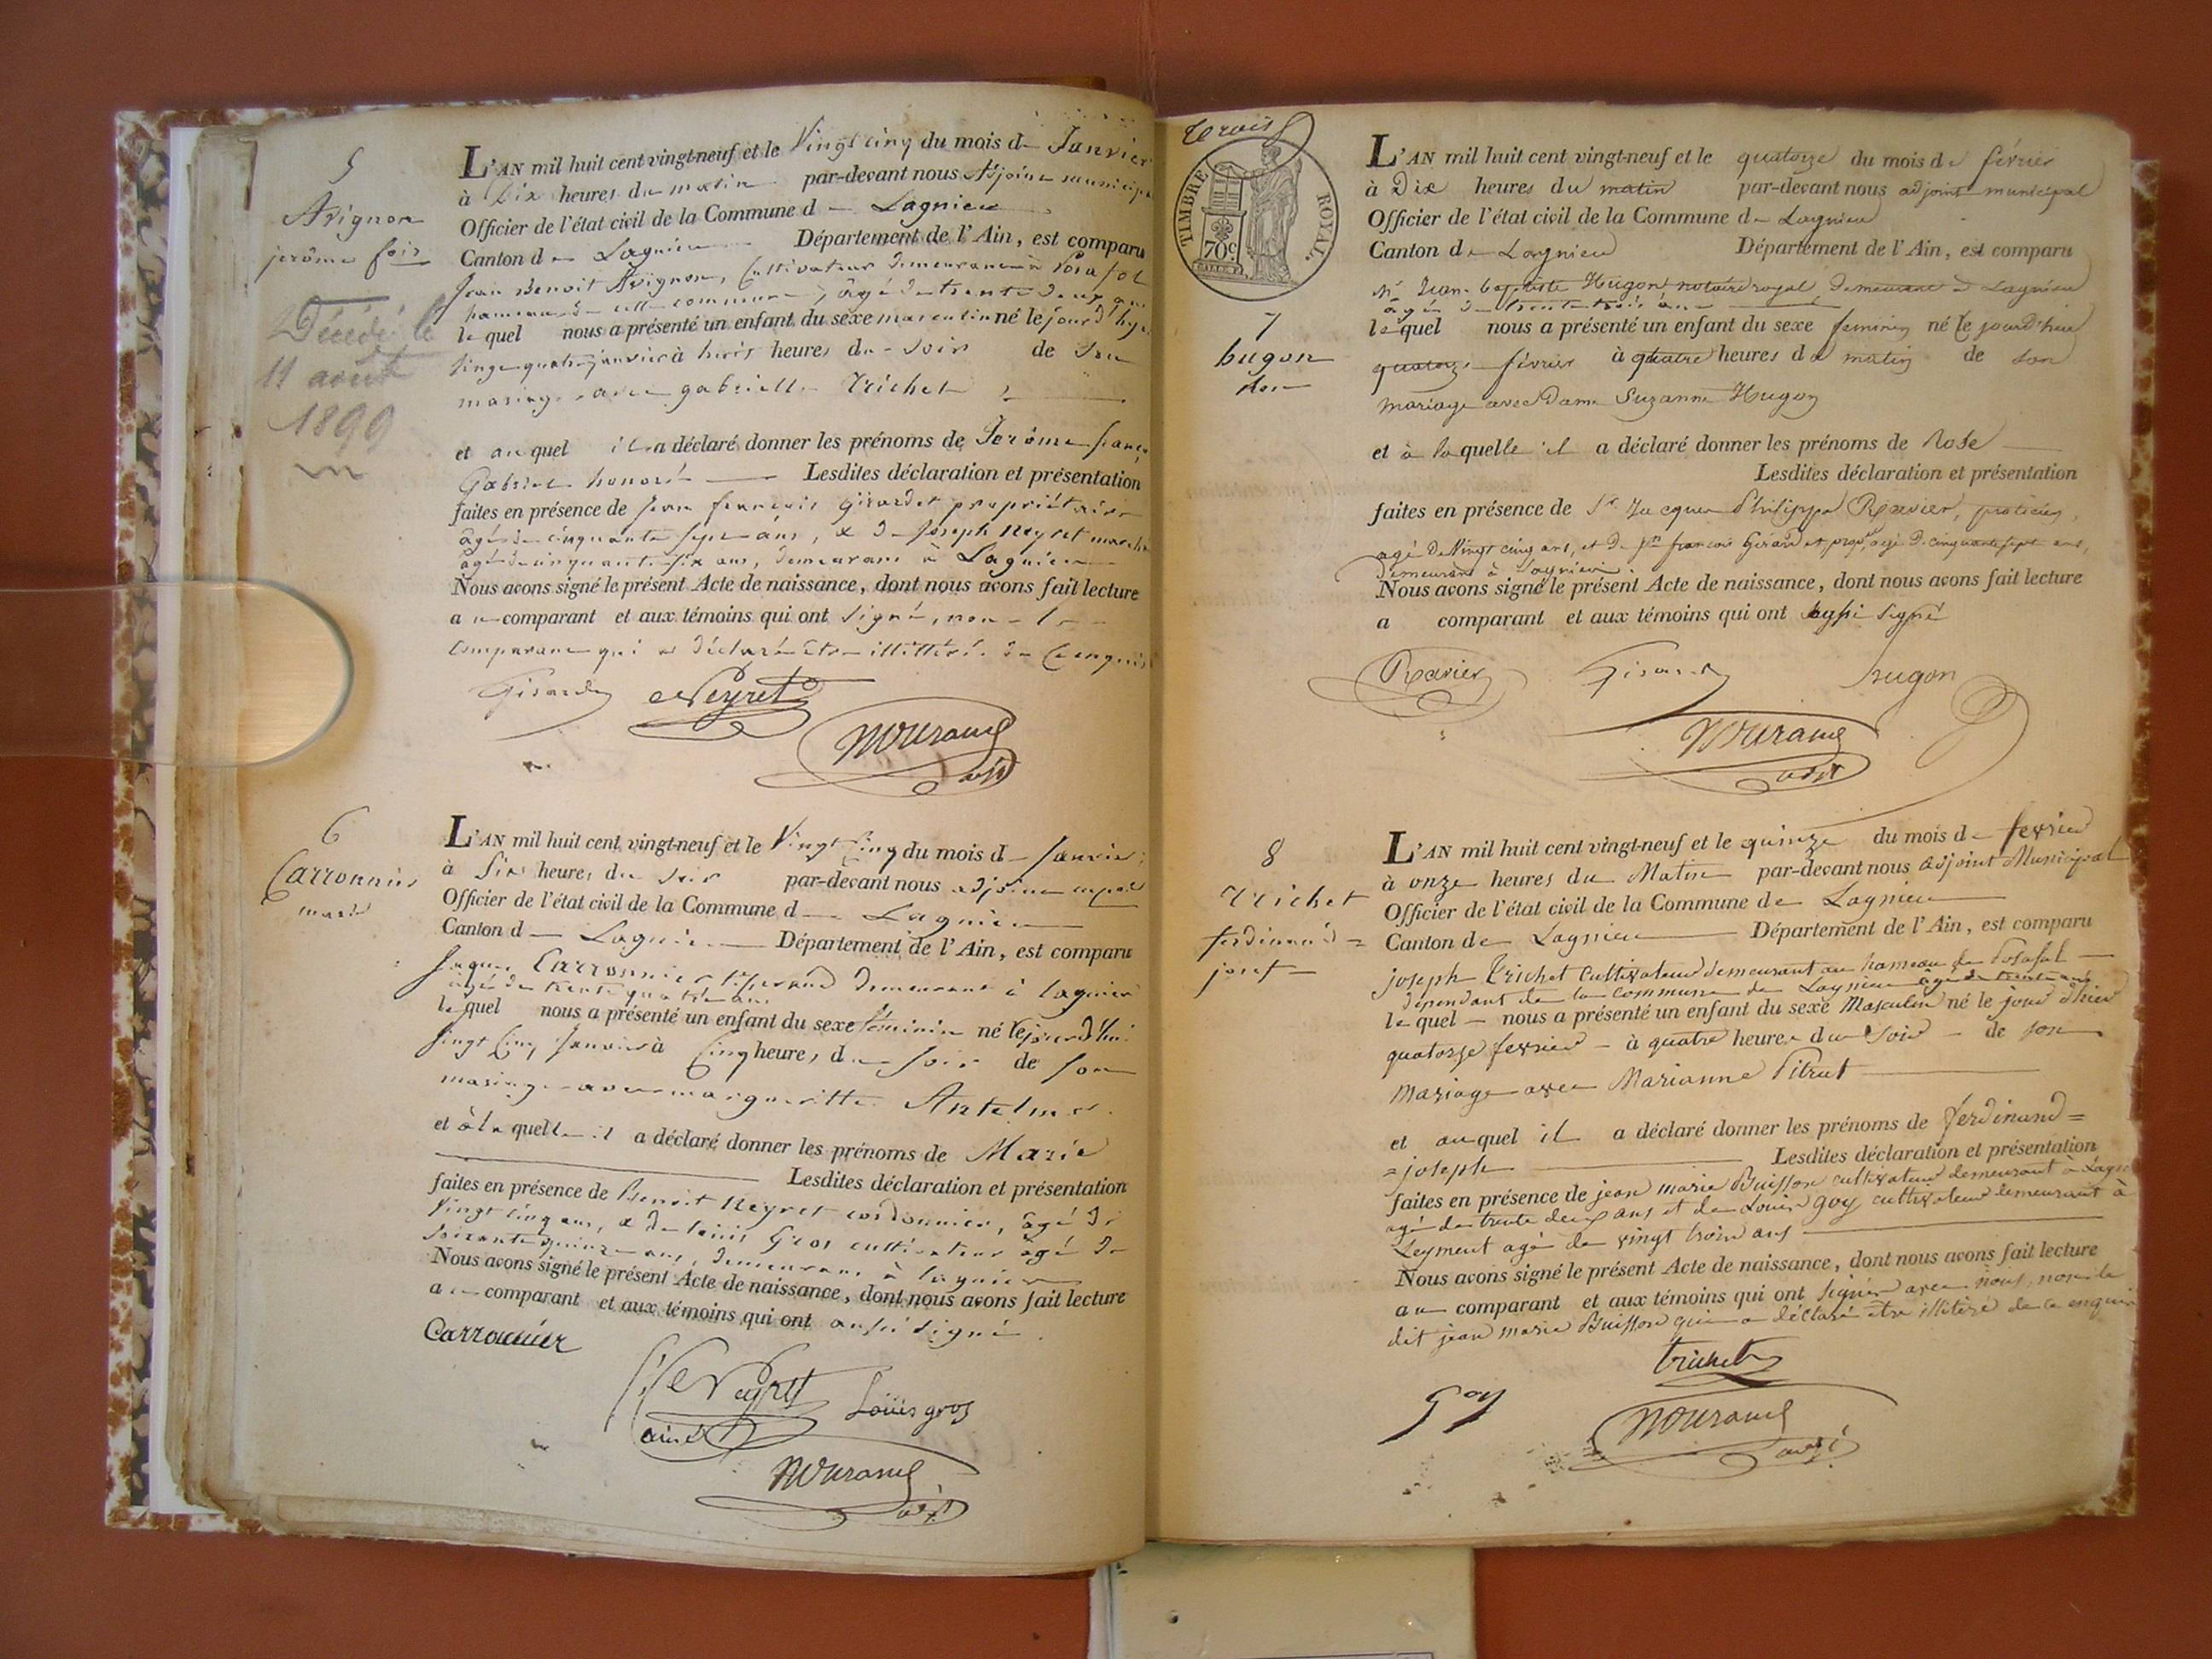 5
Avignon
jerôme fois
Décédé le
11 août
1899
L'AN mil huit cent vingt-neuf et le Vingt cinq du mois de Janvier
à Dix heures du matin par-devant nous Adjoint municipal
Officier de l'état civil de la Commune d Lagnieu
Canton de Lagnieu Département de l'Ain, est comparu
Jean Benoit Avignon, Cultivateur demeurant à Posafol
hameau de cette commune, âgé de trente deux ans
lequel nous a présenté un enfant du sexe masculin né le jour d'hyer
vingt quatre janvier à huit heures du soir de son
mariage avec gabrielle Trichet
et auquel il a déclaré donner les prénoms de Jerôme franç
Gabriel honoré Lesdites déclaration et présentation
faites en présence de Jean françois Girardet propriétaire
âgé de cinquante sept ans, & de Joseph Neyret march
âgé de cinquante six ans, demeurant à Lagnieu
Nous avons signé le présent Acte de naissance, dont nous avons fait lecture
au comparant et aux témoins qui ont signé, non le
comparant qui a déclaré être illittéré de ce enquis
Girardet Neyret
Adjt
6
Carronnier
marie
L'AN mil huit cent vingt-neuf et le Vingt Cinq du mois d Janvier
à Six heures du soir par-devant nous adjoint
Officier de l'état civil de la Commune d Lagnieu
Canton d Lagnieu Département de l'Ain, est comparu
Jaques Carronnier demeurant à lagnieu
âgé de trente quatre ans
lequel nous a présenté un enfant du sexe féminin né le jourd'hui
vingt Cinq Janvier à Cinq heures du soir de son
mariage avec margueritte Antelme
et à laquelle il a déclaré donner les prénoms de Marie
Lesdites déclaration et présentation
faites en présence de Benoit Neyret cordonnier, âgé de
vingt cinq ans, & de louis Gros cultivateur âgé de
soixante quinze ans, demeurant à lagnieu
Nous avons signé le présent Acte de naissance, dont nous avons fait lecture
au comparant et aux témoins qui ont aussi signé
Carronnier
Neyret Louis gros
ainé
adjt
Trois
TIMBRE ROYAL
70c.
7
hugon
Rose
L'AN mil huit cent vingt-neuf et le quatorze du mois de février
à Dix heures du matin par-devant nous adjoint municipal
Officier de l'état civil de la Commune de Lagnieu
Canton de Lagnieu Département de l'Ain, est comparu
Mr Jean baptiste Hugon notaire royal demeurant à Lagnieu
âgé de trente trois ans
lequel nous a présenté un enfant du sexe feminin né le jourd'hui
quatorze février à quatre heures du matin de son
mariage avec Dame Suzanne Hugon
et à laquelle il a déclaré donner les prénoms de Rose
Lesdites déclaration et présentation
faites en présence de Sr Jacques Philippe Ravier, praticien,
agé De Vingt cinq ans, et De Jn francois Girardet, propre, agé De cinquante sept ans,
Demeurant à Lagnieu.
Nous avons signé le présent Acte de naissance, dont nous avons fait lecture
a comparant et aux témoins qui ont aussi signé
Ravier Girardet hugon
adjt
8
Trichet
ferdinand =
josef
L'AN mil huit cent vingt-neuf et le quinze du mois de fevrier
à onze heures du Matin par-devant nous adjoint Municipal
Officier de l'état civil de la Commune de Lagnieu
Canton de Lagnieu Département de l'Ain, est comparu
joseph Trichet Cultivateur demeurant au hameau de Posafol
dépendant de la commune de Lagnieu âgé de trente ans
lequel nous a présenté un enfant du sexe Masculin né le jour d'hier
quatorze fevrier à quatre heures du soir de son
mariage avec Marianne Pitrat
et auquel il a déclaré donner les prénoms de ferdinand =
= joseph Lesdites déclaration et présentation
faites en présence de jean marie Buisson cultivateur demeurant à Lagn
agé de trente deux ans et de Louis goy cultivateur demeurant à
Leyment agé de vingt trois ans
Nous avons signé le présent Acte de naissance, dont nous avons fait lecture
au comparant et aux témoins qui ont signés avec nous, non le
dit jean marie Buisson qui a déclaré etre illiteré de ce enquis
trichet
goy